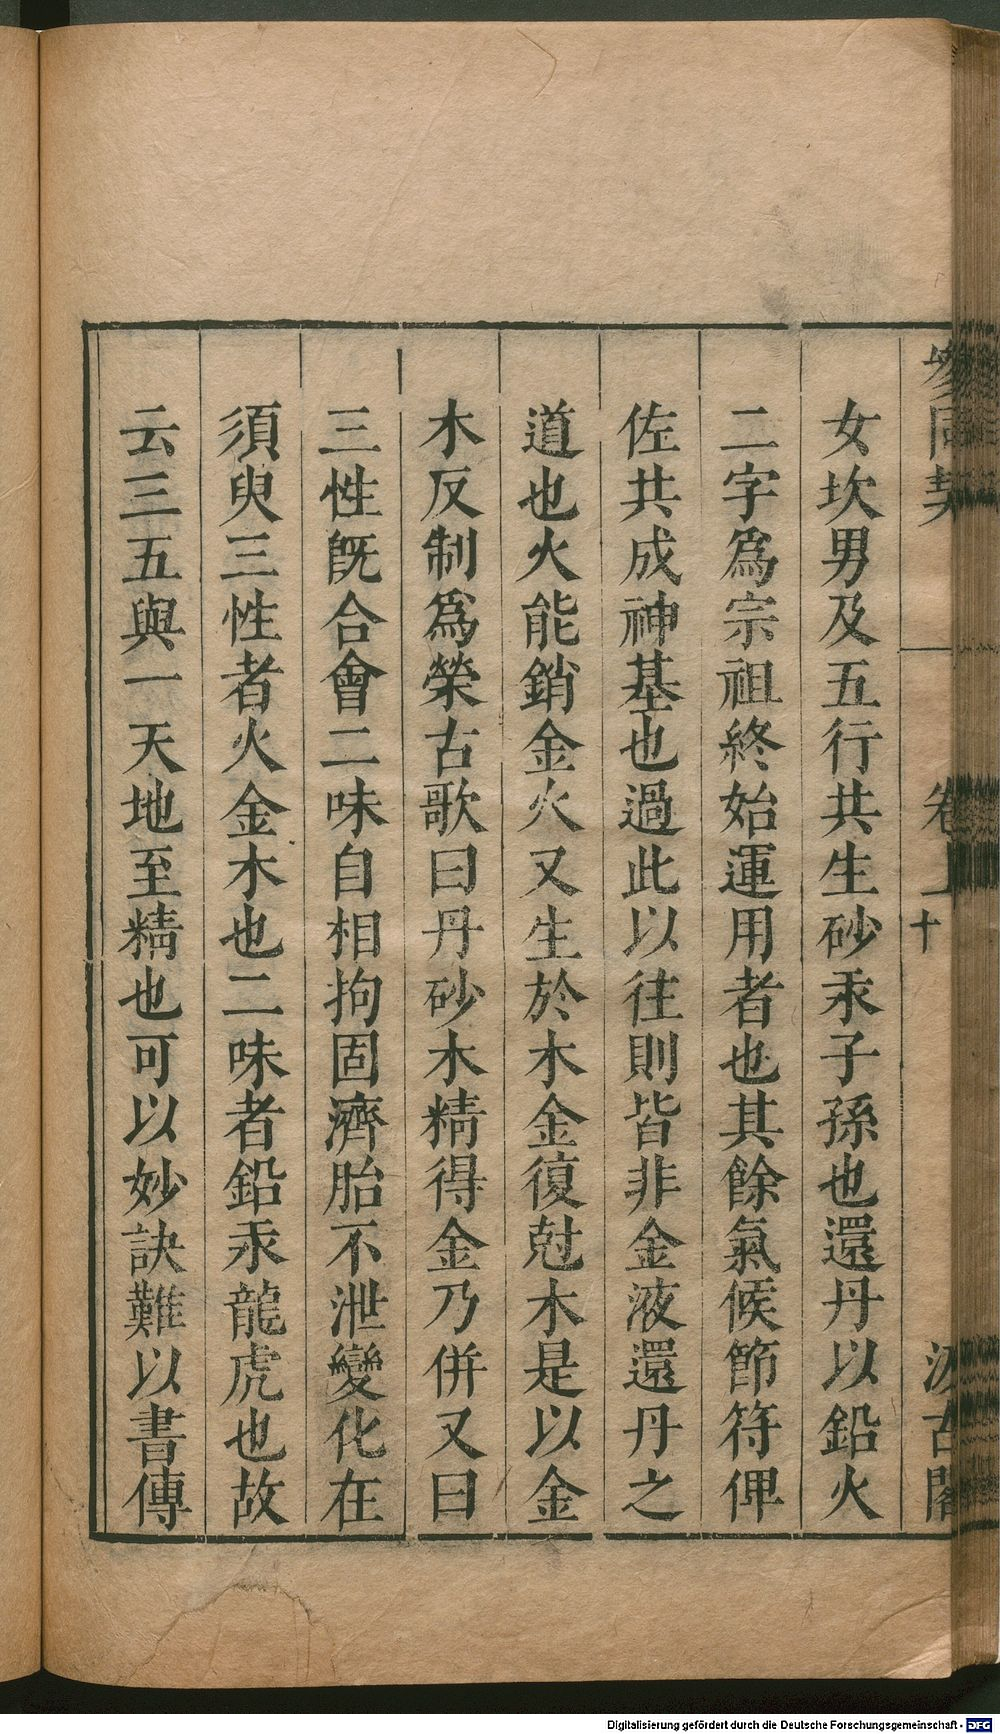 參同契 卷上 十 汲古閣
女坎男及五行共生砂汞子孫也還丹以鉛火
二字爲宗祖終始運用者也其餘氣候節符俾
佐共成神基也過此以往則皆非金液還丹之
道也火能銷金火又生於木金復尅木是以金
木反制爲榮古歌曰丹砂木精得金乃併又曰
三性旣合會二味自相拘固濟胎不泄變化在
須臾三性者火金木也二味者鉛汞龍虎也故
云三五與一天地至精也可以妙訣難以書傳
Digitalisierung gefördert durch die Deutsche Forschungsgemeinschaft - DFG